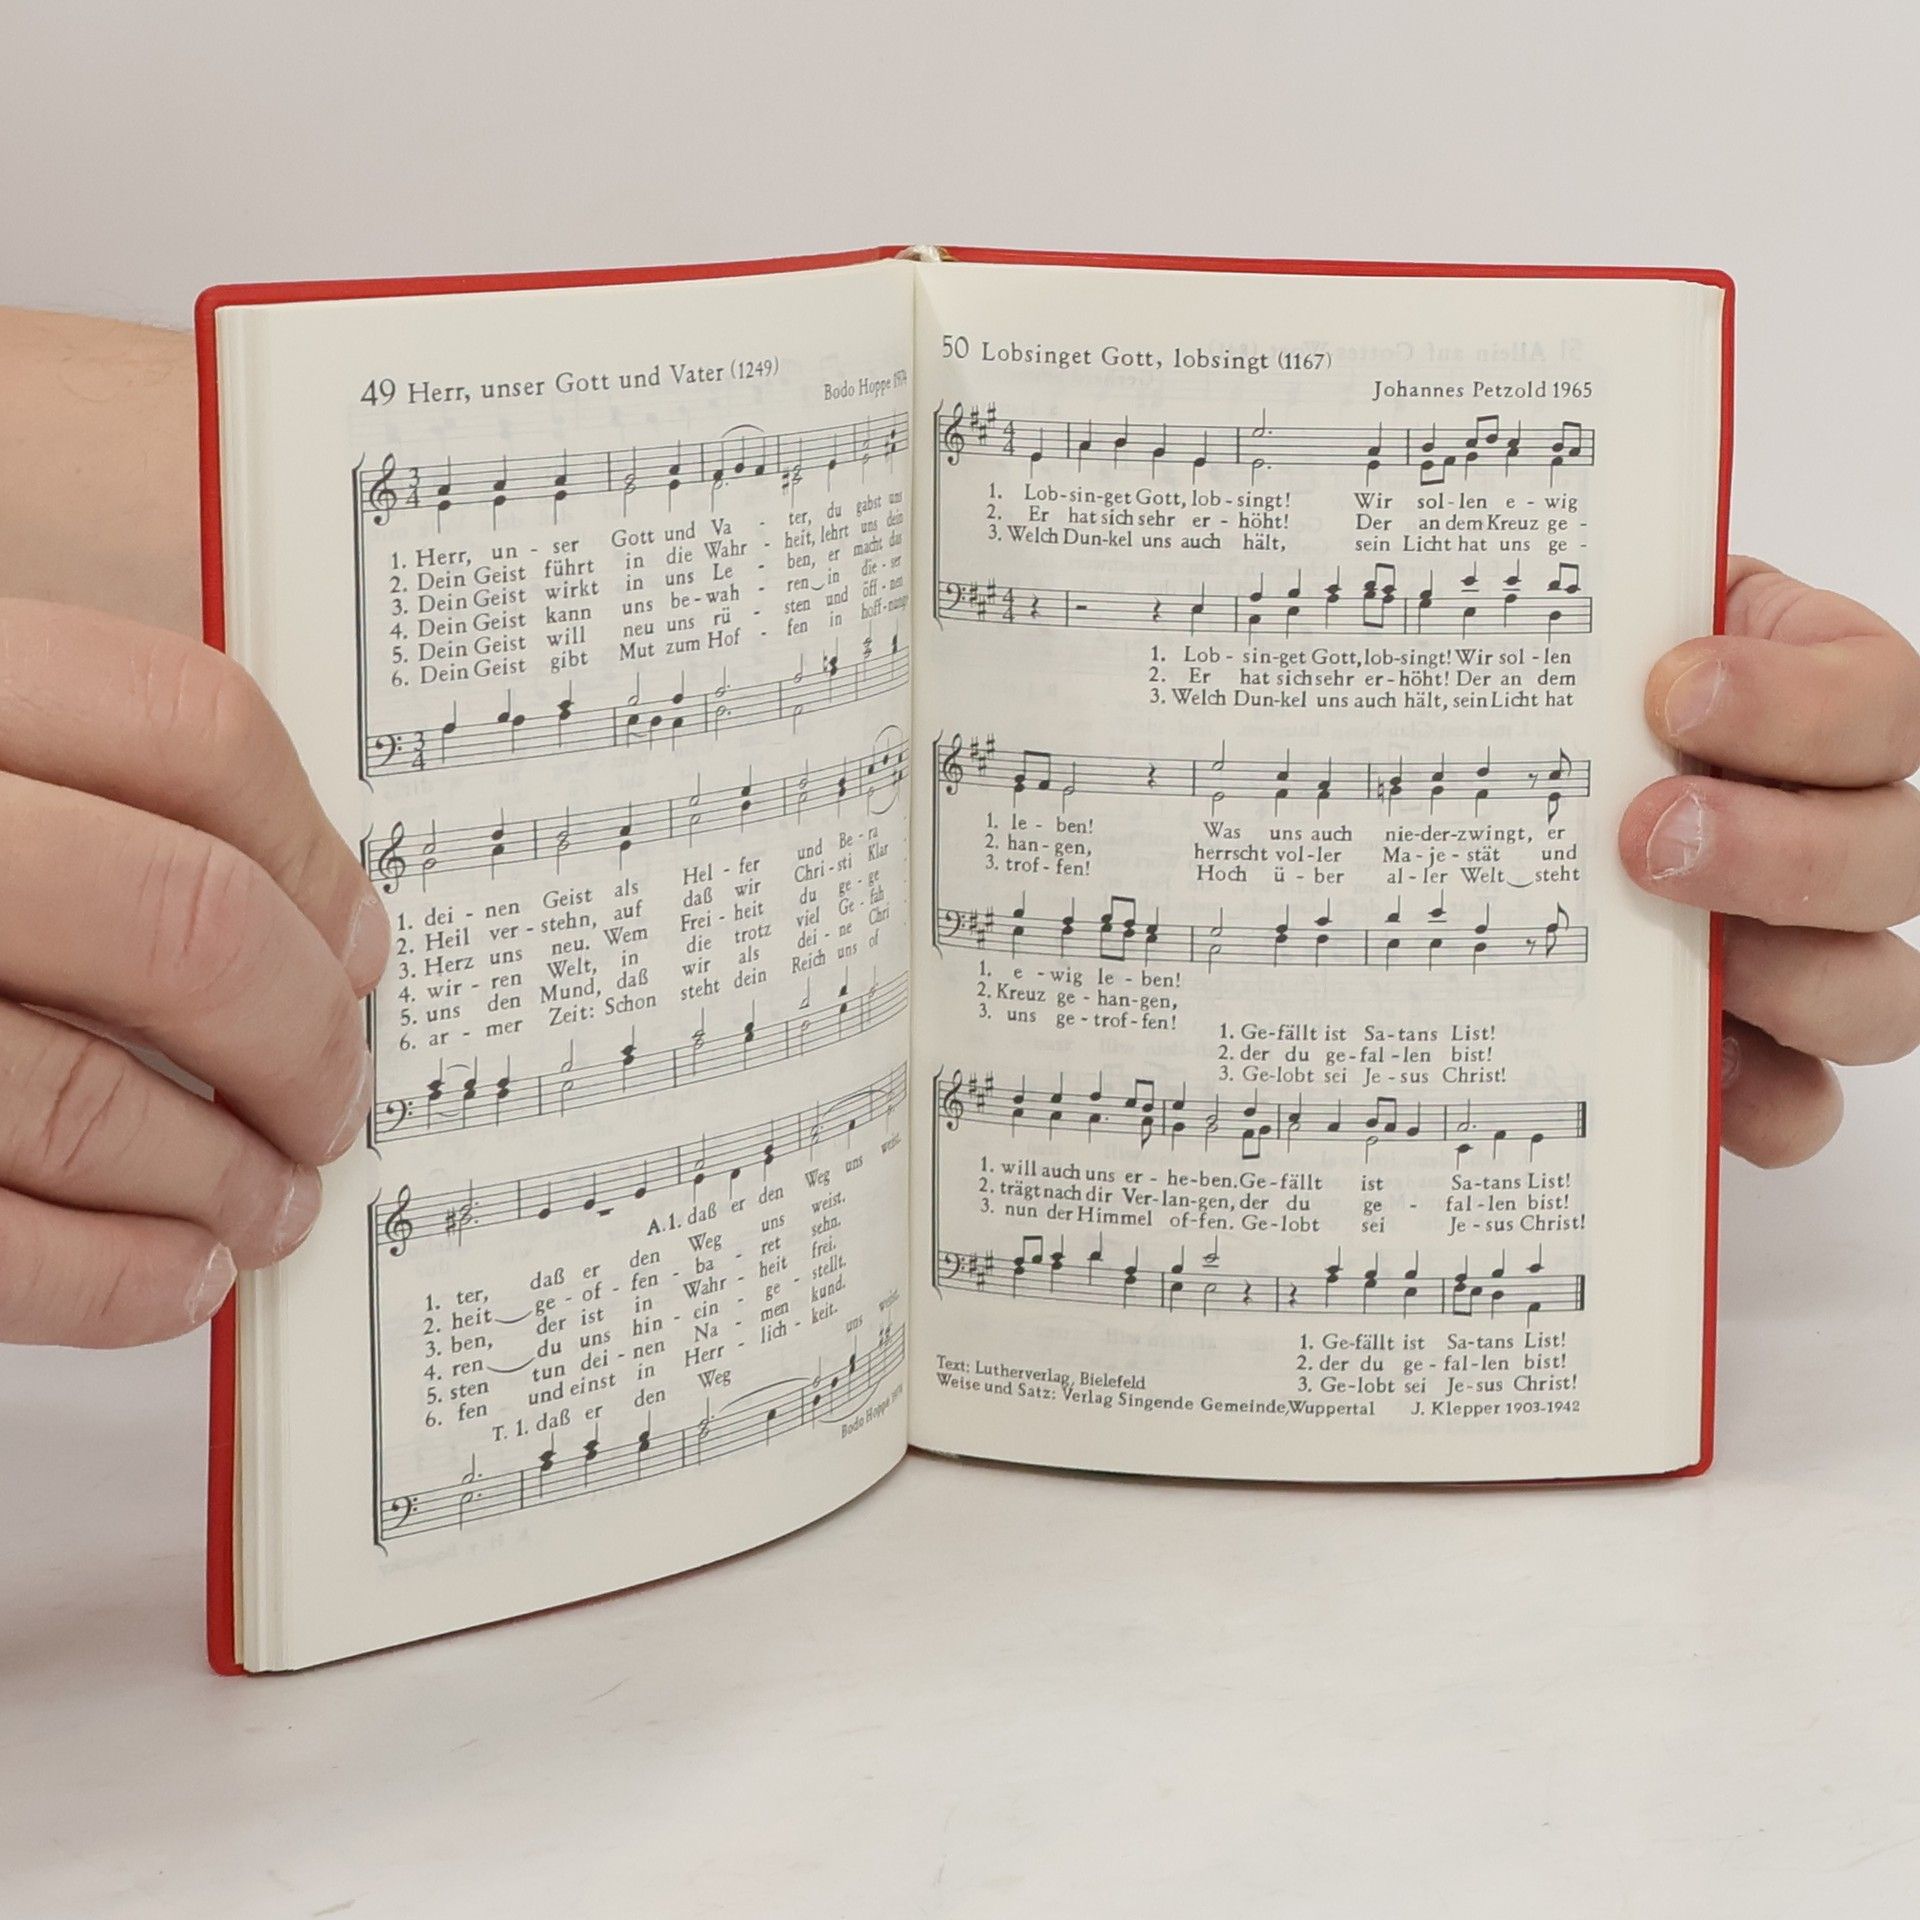 49 Herr, unser Gott und Vater (1249)
Bodo Hoppe 1974
3
4
1. Herr, un - ser Gott und Va - ter, du gabst uns
2. Dein Geist führt in die Wahr - heit, lehrt uns dein
3. Dein Geist wirkt in uns Le - ben, er macht das
4. Dein Geist kann uns be - wah - ren in die - ser
5. Dein Geist will neu uns rü - sten und öff - nen
6. Dein Geist gibt Mut zum Hof - fen in hoff - nungs
3
4
1. dei - nen Geist als Hel - fer und Be - ra -
2. Heil ver - stehn, auf daß wir Chri - sti Klar -
3. Herz uns neu. Wem Frei - heit du ge - ge -
4. wir - ren Welt, in die trotz viel Ge - fah -
5. uns den Mund, daß wir als dei - ne Chri -
6. ar - mer Zeit: Schon steht dein Reich uns of -
A. 1. daß er den Weg uns weist.
1. ter, daß er den Weg uns weist.
2. heit ge - of - fen - ba - ret sehn.
3. ben, der ist in Wahr - heit frei.
4. ren du uns hin - ein - ge - stellt.
5. sten tun dei - nen Na - men kund.
6. fen und einst in Herr - lich - keit.
T. 1. daß er den Weg uns weist.
Bodo Hoppe 1974
50 Lobsinget Gott, lobsingt (1167)
Johannes Petzold 1965
4
4
1. Lob - sin - get Gott, lob - singt! Wir sol - len e - wig
2. Er hat sich sehr er - höht! Der an dem Kreuz ge -
3. Welch Dun - kel uns auch hält, sein Licht hat uns ge -
4
4
1. Lob - sin - get Gott, lob - singt! Wir sol - len
2. Er hat sich sehr er - höht! Der an dem
3. Welch Dun - kel uns auch hält, sein Licht hat
1. le - ben! Was uns auch nie - der - zwingt, er
2. han - gen, herrscht vol - ler Ma - je - stät und
3. trof - fen! Hoch ü - ber al - ler Welt steht
1. e - wig le - ben!
2. Kreuz ge - han - gen,
3. uns ge - trof - fen!
1. Ge - fällt ist Sa - tans List!
2. der du ge - fal - len bist!
3. Ge - lobt sei Je - sus Christ!
1. will auch uns er - he - ben. Ge - fällt ist Sa - tans List!
2. trägt nach dir Ver - lan - gen, der du ge - fal - len bist!
3. nun der Himmel of - fen. Ge - lobt sei Je - sus Christ!
1. Ge - fällt ist Sa - tans List!
2. der du ge - fal - len bist!
3. Ge - lobt sei Je - sus Christ!
Text: Lutherverlag, Bielefeld
Weise und Satz: Verlag Singende Gemeinde, Wuppertal J. Klepper 1903-1942